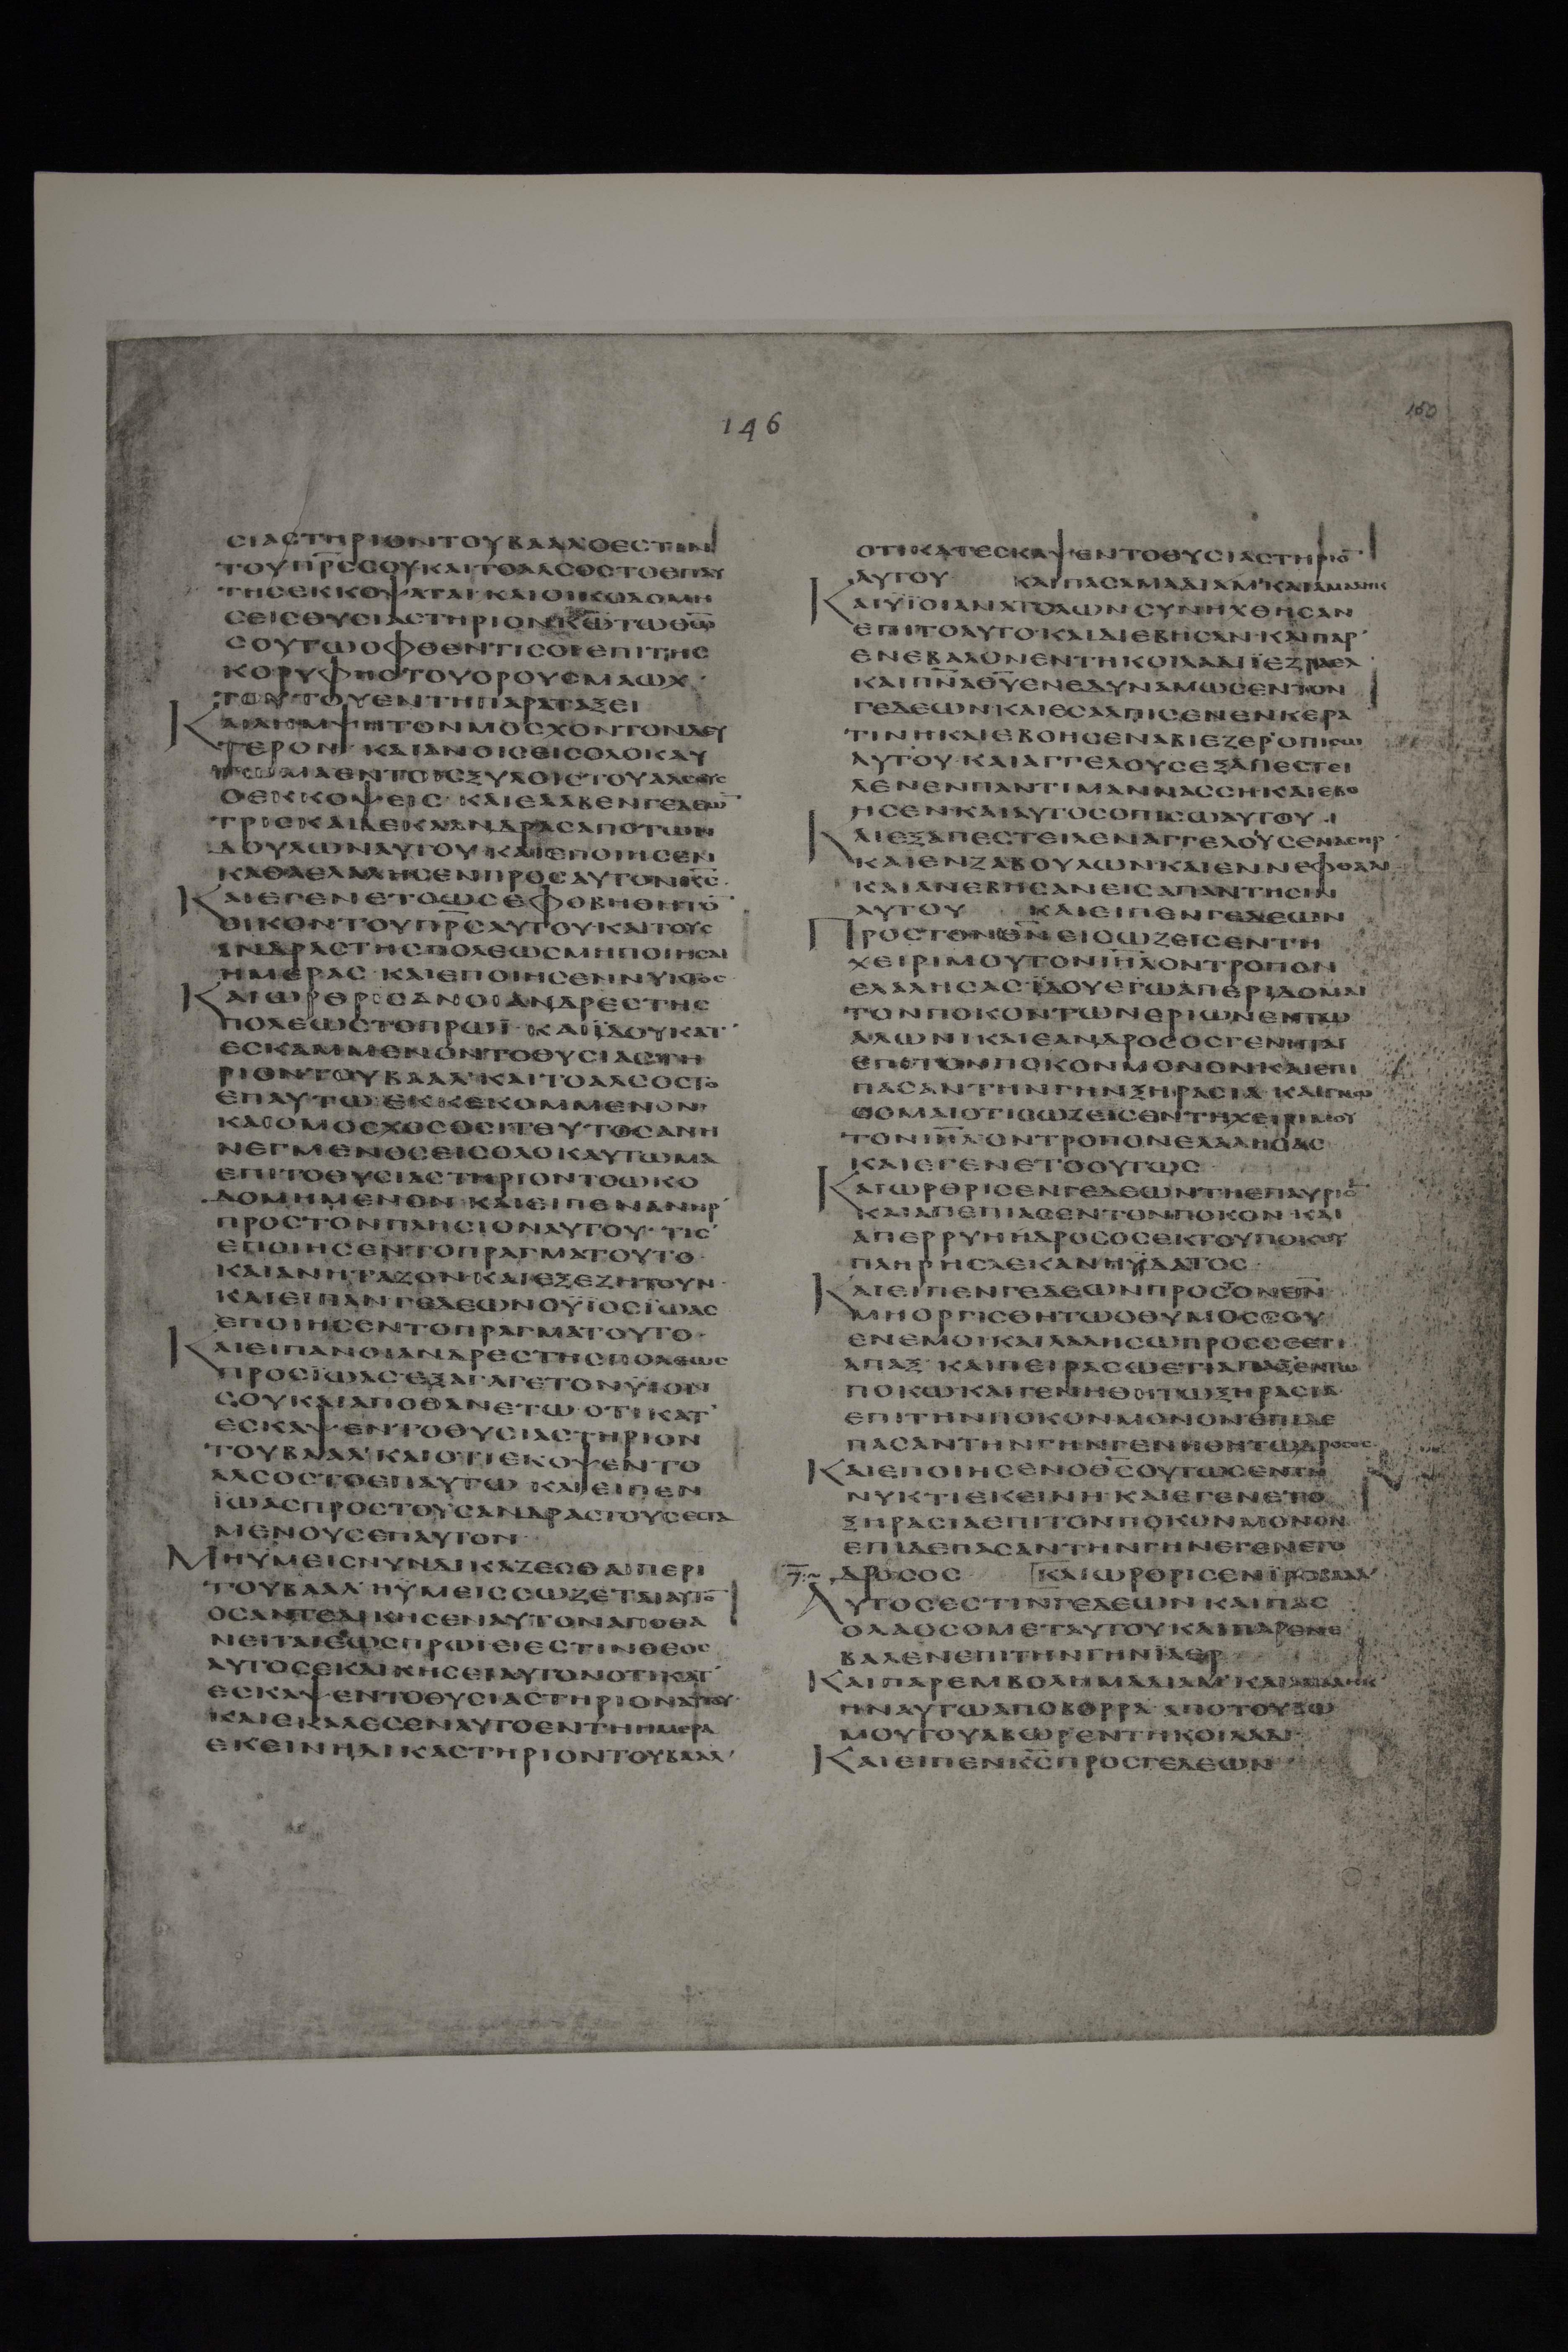 146
160
ϹΙΑϹΤΗΡΙΟΝΤΟΥΒΑΑΛΟΕϹΤΙΝ
ΤΟΥΠΡ̅Ϲ̅ϹΟΥΚΑΙΤΟΑΛϹΟϹΤΟΕΠΑΥ
ΤΗϹΕΚΚΟΨΑΤΑΙΚΑΙΟΙΚΟΔΟΜΗ
ϹΕΙϹΘΥϹΙΑϹΤΗΡΙΟΝΚ̅Ω̅ΤΩΘ̅Ω̅
ϹΟΥΤΩΟΦΘΕΝΤΙϹΟΙΕΠΙΤΗϹ
ΚΟΡΥΦΗϹΤΟΥΟΡΟΥϹΜΑΩΧ
ΤΟΥΤΟΥΕΝΤΗΠΑΡΑΤΑΞΕΙ
ΤΕΡΟΝ ΚΑΙΑΝΟΙϹΕΙϹΟΛΟΚΑΥ
ΤΩΜΑΕΝΤΟΙϹΞΥΛΟΙϹΤΟΥΑΛϹΟΥϹ
ΟΕΚΚΟΨΕΙϹ ΚΑΙΕΛΑΒΕΝΓΕΔΕΩ̅
ΤΡΙϹΚΑΙΔΕΚΑΑΝΔΡΑϹΑΠΟΤΩΝ
ΔΟΥΛΩΝΑΥΤΟΥ ΚΑΙΕΠΟΙΗϹΕΝ
ΚΑΘΑΕΛΑΛΗϹΕΝΠΡΟϹΑΥΤΟΝΚ̅Ϲ̅
ΚΑΙΕΓΕΝΕΤΟΩϹΕΦΟΒΗΘΗΤΟ̅
ΟΙΚΟΝΤΟΥΠΡ̅Ϲ̅ΑΥΤΟΥΚΑΙΤΟΥϹ
ΑΝΔΡΑϹΤΗϹΠΟΛΕΩϹΜΗΠΟΙΗϹΑΙ
ΗΜΕΡΑϹ ΚΑΙΕΠΟΙΗϹΕΝΝΥΚΤΟϹ
ΚΑΙΩΡΘΡΙϹΑΝΟΙΑΝΔΡΕϹΤΗϹ
ΠΟΛΕΩϹΤΟΠΡΩΪ ΚΑΙΪΔΟΥΚΑΤ
ΕϹΚΑΜΜΕΝΟΝΤΟΘΥϹΙΑϹΤΗ
ΡΙΟΝΤΟΥΒΑΑΛ ΚΑΙΤΟΑΛϹΟϹΤΟ
ΕΠΑΥΤΩΕΚΚΕΚΟΜΜΕΝΟΝ
ΚΑΙΟΜΟϹΧΟϹΟϹΙΤΕΥΤΟϹΑΝΗ
ΝΕΓΜΕΝΟϹΕΙϹΟΛΟΚΑΥΤΩΜΑ
ΕΠΙΤΟΘΥϹΙΑϹΤΗΡΙΟΝΤΟΩΚΟ
ΔΟΜΗΜΕΝΟΝ ΚΑΙΕΙΠΕΝΑΝΗΡ
ΠΡΟϹΤΟΝΠΛΗϹΙΟΝΑΥΤΟΥ ΤΙϹ
ΕΠΟΙΗϹΕΝΤΟΠΡΑΓΜΑΤΟΥΤΟ
ΚΑΙΑΝΗΤΑΖΟΝΚΑΙΕΞΕΖΗΤΟΥΝ
ΚΑΙΕΙΠΑΝΓΕΔΕΩΝΟΫΙΟϹΪΩΑϹ
ΕΠΟΙΗϹΕΝΤΟΠΡΑΓΜΑΤΟΥΤΟ
ΚΑΙΕΙΠΑΝΟΙΑΝΔΡΕϹΤΗϹΠΟΛΕΩϹ
ΠΡΟϹΪΩΑϹΕΞΑΓΑΓΕΤΟΝΫΙΟΝ
ϹΟΥΚΑΙΑΠΟΘΑΝΕΤΩ ΟΤΙΚΑΤ
ΕϹΚΑΨΕΝΤΟΘΥϹΙΑϹΤΗΡΙΟΝ
ΤΟΥΒΑΑΛ ΚΑΙΟΤΙΕΚΟΨΕΝΤΟ
ΑΛϹΟϹΤΟΕΠΑΥΤΩ ΚΑΙΕΙΠΕΝ
ΪΩΑϹΠΡΟϹΤΟΥϹΑΝΔΡΑϹΤΟΥϹΕϹΤΑ
ΜΕΝΟΥϹΕΠΑΥΤΟΝ
ΜΗΥΜΕΙϹΝΥΝΔΙΚΑΖΕϹΘΑΙΠΕΡΙ
ΤΟΥΒΑΑΛ ΗΥΜΕΙϹϹΩΖΕΤΑΙΑΥΤΟ̅
ΟϹΑΝΤΕΔΙΚΗϹΕΝΑΥΤΟΝΑΠΟΘΑ
ΝΕΙΤΑΙΕΩϹΠΡΩΪΕΙΕϹΤΙΝΘΕΟϹ
ΑΥΤΟϹΕΚΔΙΚΗϹΕΙΑΥΤΟΝΟΤΙΚΑΤ
ΕϹΚΑΨΕΝΤΟΘΥϹΙΑϹΤΗΡΙΟΝΑΥΤΟΥ
ΚΑΙΕΚΑΛΕϹΕΝΑΥΤΟΕΝΤΗΗΜΕΡΑ
ΕΚΕΙΝΗΔΙΚΑϹΤΗΡΙΟΝΤΟΥΒΑΑΛ
ΟΤΙΚΑΤΕϹΚΑΨΕΝΤΟΘΥϹΙΑϹΤΗΡΙΟ̅
ΑΥΤΟΥ ΚΑΙΠΑϹΑΜΑΔΙΑΜ ΚΑΙΑΜΑΛΗΚ
ΚΑΙΫΙΟΙΑΝΑΤΟΛΩΝϹΥΝΗΧΘΗϹΑΝ
ΕΠΙΤΟΑΥΤΟ ΚΑΙΔΙΕΒΗϹΑΝ ΚΑΙΠΑΡ
ΕΝΕΒΑΛΟΝΕΝΤΗΚΟΙΛΑΔΙΪΕΖΡΑΕΛ
ΚΑΙΠΝ̅Α̅Θ̅Υ̅ΕΝΕΔΥΝΑΜΩϹΕΝΤΟΝ
ΓΕΔΕΩΝΚΑΙΕϹΑΛΠΙϹΕΝΕΝΚΕΡΑ
ΤΙΝΗΚΑΙΕΒΟΗϹΕΝΑΒΙΕΖΕΡΟΠΙϹΩ
ΑΥΤΟΥ ΚΑΙΑΓΓΕΛΟΥϹΕΞΑΠΕϹΤΕΙ
ΛΕΝΕΝΠΑΝΤΙΜΑΝΝΑϹϹΗΚΑΙΕΒΟ
ΗϹΕΝΚΑΙΑΥΤΟϹΟΠΙϹΩΑΥΤΟΥ
ΚΑΙΕΞΑΠΕϹΤΕΙΛΕΝΑΓΓΕΛΟΥϹΕΝΑϹΗΡ
ΚΑΙΕΝΖΑΒΟΥΛΩΝ ΚΑΙΕΝΝΕΦΘΑΛΙ
ΚΑΙΑΝΕΒΗϹΑΝΕΙϹΑΠΑΝΤΗϹΙΝ
ΑΥΤΟΥ ΚΑΙΕΙΠΕΝΓΕΔΕΩΝ
ΠΡΟϹΤΟΝΘ̅Ν̅ΕΙϹΩΖΕΙϹΕΝΤΗ
ΧΕΙΡΙΜΟΥΤΟΝΙ̅Η̅Λ̅ΟΝΤΡΟΠΟΝ
ΕΛΑΛΗϹΑϹΪΔΟΥΕΓΩΑΠΕΡΙΔΟΜΑΙ
ΤΟΝΠΟΚΟΝΤΩΝΕΡΙΩΝΕΝΤΩ
ΑΛΩΝΙΚΑΙΕΑΝΔΡΟϹΟϹΓΕΝΗΤΑΙ
ΕΠΙΤΟΝΠΟΚΟΝΜΟΝΟΝΚΑΙΕΠΙ
ΠΑϹΑΝΤΗΝΓΗΝΞΗΡΑϹΙΑ ΚΑΙΓΝΩ
ϹΟΜΑΙΟΤΙϹΩΖΕΙϹΕΝΤΗΧΕΙΡΙΜΟΥ
ΤΟΝΙ̅Η̅Λ̅ΟΝΤΡΟΠΟΝΕΛΑΛΗϹΑϹ
ΚΑΙΕΓΕΝΕΤΟΟΥΤΩϹ
ΚΑΙΩΡΘΡΙϹΕΝΓΕΔΕΩΝΤΗΕΠΑΥΡΙΟ̅
ΚΑΙΑΠΕΠΙΑϹΕΝΤΟΝΠΟΚΟΝ ΚΑΙ
ΑΠΕΡΡΥΗΗΔΡΟϹΟϹΕΚΤΟΥΠΟΚΟΥ
ΠΛΗΡΗϹΛΕΚΑΝΗΫΔΑΤΟϹ
ΚΑΙΕΙΠΕΝΓΕΔΕΩΝΠΡΟϹΤΟΝΘ̅Ν̅
ΜΗΟΡΓΙϹΘΗΤΩΟΘΥΜΟϹϹΟΥ
ΕΝΕΜΟΙΚΑΙΛΑΛΗϹΩΠΡΟϹϹΕΕΤΙ
ΑΠΑΞ ΚΑΙΠΕΙΡΑϹΩΕΤΙΑΠΑΞΕΝΤΩ
ΠΟΚΩΚΑΙΓΕΝΗΘΗΤΩΞΗΡΑϹΙΑ
ΕΠΙΤΗΝΠΟΚΟΝΜΟΝΟΝΕΠΙΔΕ
ΠΑϹΑΝΤΗΝΓΗΝΓΕΝΗΘΗΤΩΔΡΟϹΟϹ
ΚΑΙΕΠΟΙΗϹΕΝΟΘ̅Ϲ̅ΟΥΤΩϹΕΝΤΗ
ΝΥΚΤΙΕΚΕΙΝΗ ΚΑΙΕΓΕΝΕΤΟ
ΞΗΡΑϹΙΑΕΠΙΤΟΝΠΟΚΟΝΜΟΝΟΝ
ΕΠΙΔΕΠΑϹΑΝΤΗΝΓΗΝΕΓΕΝΕΤΟ
ΔΡΟϹΟϹ ΚΑΙΩΡΘΡΙϹΕΝΙΡΟΒΑΑΛ
ΑΥΤΟϹΕϹΤΙΝΓΕΔΕΩΝ ΚΑΙΠΑϹ
ΟΛΑΟϹΟΜΕΤΑΥΤΟΥΚΑΙΠΑΡΕΝΕ
ΒΑΛΕΝΕΠΙΤΗΝΓΗΝ
ΚΑΙΠΑΡΕΜΒΟΛΗΜΑΔΙΑΜ ΚΑΙΑΜΑΛΗΚ
ΗΝΑΥΤΩΑΠΟΒΟΡΡΑ ΑΠΟΤΟΥΒΩ
ΜΟΥΤΟΥΑΒΩΡΕΝΤΗΚΟΙΛΑΔΙ
ΚΑΙΕΙΠΕΝΚ̅Ϲ̅ΠΡΟϹΓΕΔΕΩΝ